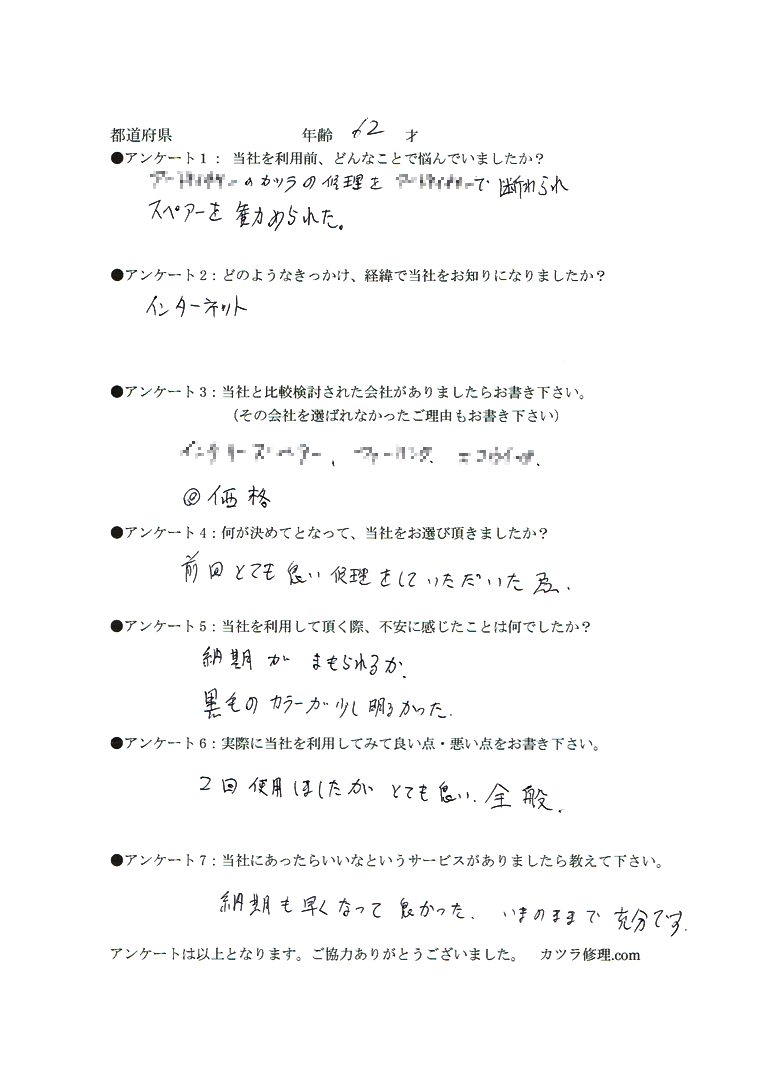 都道府県 年齢 62 才
●アンケート1：当社を利用前、どんなことで悩んでいましたか？
のカツラの修理を で断わられ
スペアーを勧められた。
●アンケート2：どのようなきっかけ、経緯で当社をお知りになりましたか？
インターネット
●アンケート3：当社と比較検討された会社がありましたらお書き下さい。
（その会社を選ばれなかったご理由もお書き下さい）
◎価格
●アンケート4：何が決めてとなって、当社をお選び頂きましたか？
前回とても良い修理をしていただいた為.
●アンケート5：当社を利用して頂く際、不安に感じたことは何でしたか？
納期がまもられるか.
黒毛のカラーが少し明るかった.
●アンケート6：実際に当社を利用してみて良い点・悪い点をお書き下さい。
2回使用しましたがとても良い.全般.
●アンケート7：当社にあったらいいなというサービスがありましたら教えて下さい。
納期も早くなって良かった. いまのままで充分です.
アンケートは以上となります。ご協力ありがとうございました。 カツラ修理.com